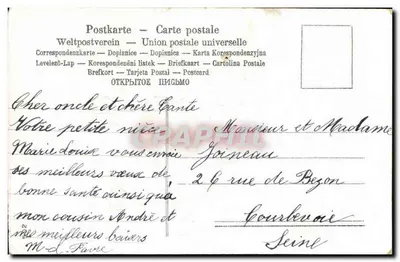 Postkarte - Carte postale
Weltpostverein - Union postale universelle
Correspondenzkarte - Dopisnice - Dopisnica - Karta Korespondencyjna
Levelező-Lap - Korespondenční listek - Briefkaart - Cartolina Postale
Brefkort - Tarjeta Postal - Postcard
ОТКРЫТОЕ ПИСЬМО
Cher oncle et chère Tante
Votre petite nièce
Marie Louise vous envoie
ses meilleurs vœux de
bonne santé ainsi que
mon cousin André et
mes meilleurs baisers
M-L. Favre
Monsieur et Madame
Joineau
26 rue de Bezon
Courbevoie
Seine